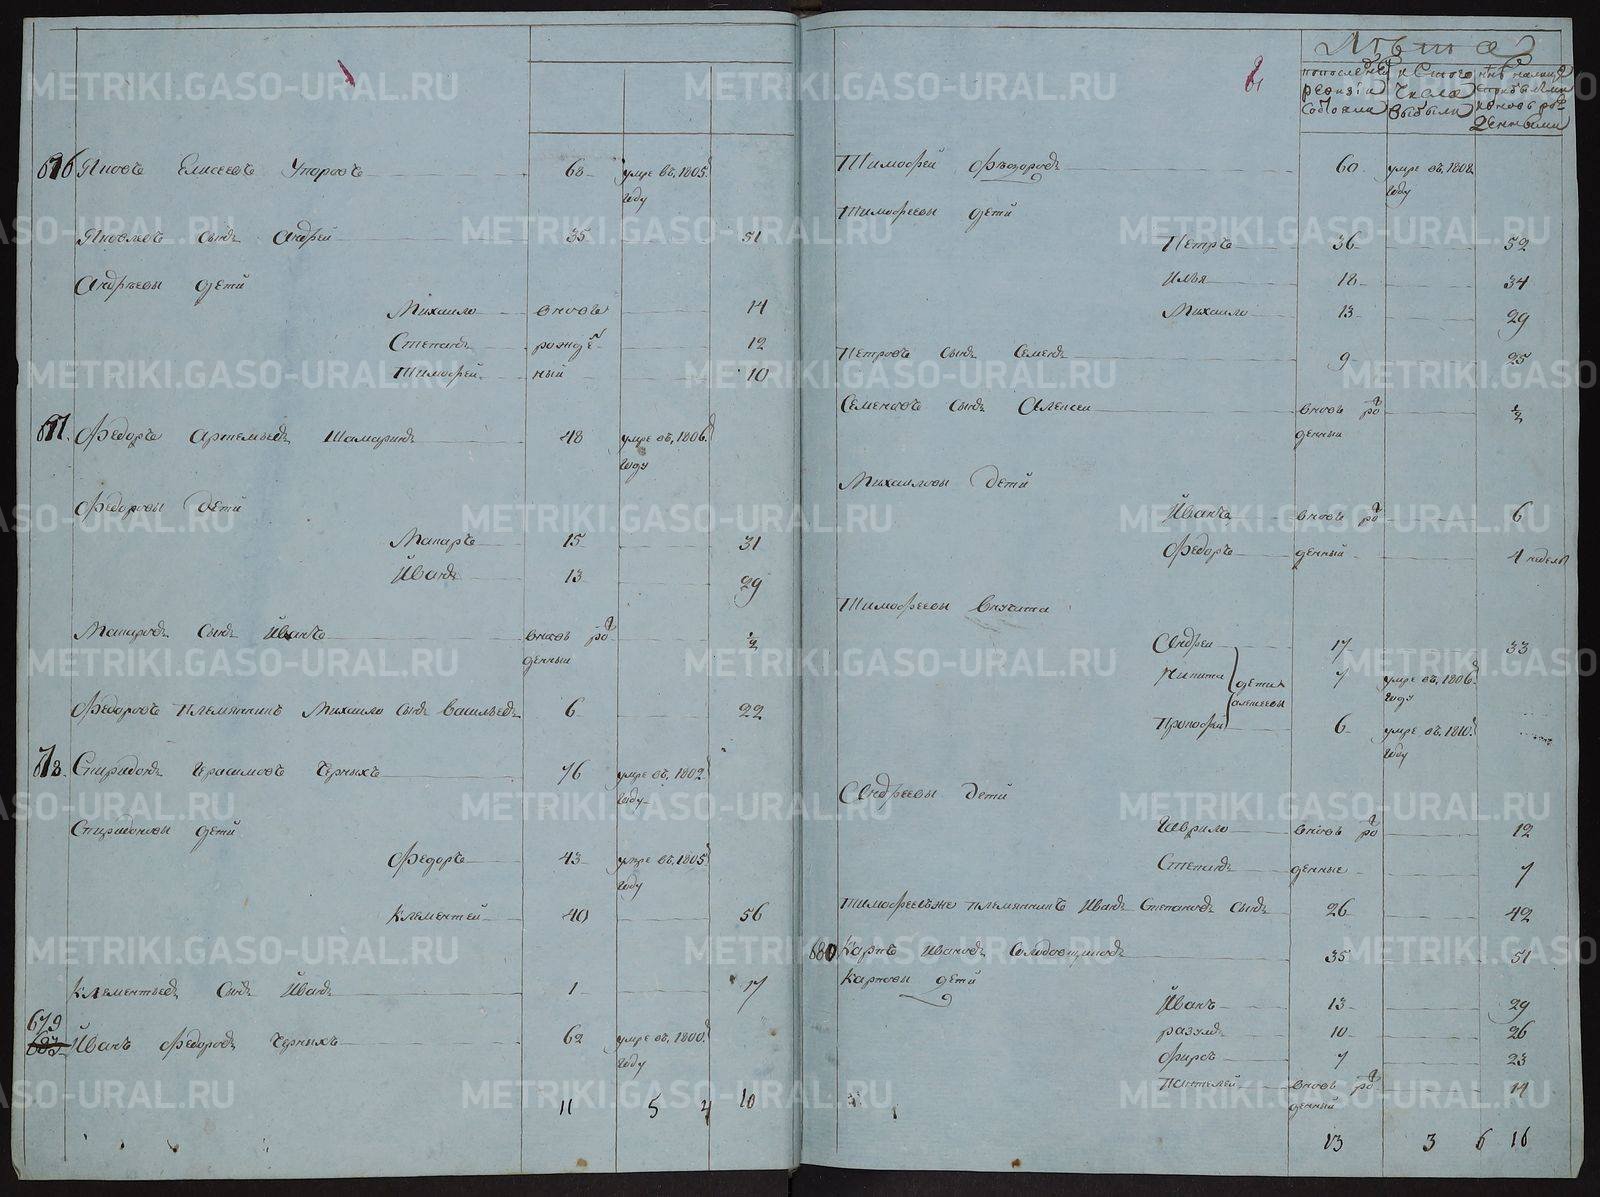 676 Яковъ Елисеевъ Упоровъ 60 умре въ 1805.
году
Яковлевъ сынъ Андрей 35 51
Андреевы дети
Михаило вновь 14
Степанъ рожде 12
Тимофей ный 10
677. Федоръ Артемьевъ Шамаринъ 48 умре въ 1806.
году
Федоровы дети
Макаръ 15 31
Иванъ 13 29
Макаровъ сынъ Иванъ вновь ро ½
денный
Федоровъ племянникъ Михаило сынъ Васильевъ 6 22
678. Спиридонъ Герасимовъ Черныхъ 76 умре въ 1802.
году
Спиридоновы дети
Федоръ 43 умре въ 1805
году
Клементей 40 56
Клементьевъ сынъ Иванъ 1 17
679
Иванъ Федоровъ Черныхъ 62 умре въ 1800.
году
11 5 4 10
Лѣта
попоследней
ревизии
состояло
и С того
числа
выбыли
Тимофей Федоровъ 60 умре въ 1808
году
Тимофеевы дети
Петръ 36 52
Илья 18 34
Михаило 13 29
Петровъ сынъ Семенъ 9 25
Семеновъ сынъ Алексеи вновь ро ½
денныи
Михаиловы дети
Иванъ вновь ро 6
Федоръ денный 4 недели
Тимофеевы внучата
Андреи 17 33
Никита дети 7 умре въ 1806
алексеевы году
Прокофеи 6 умре въ 1810
году
Андреевы дети
Гаврило вновь ро 12
Степанъ денные 7
Тимофеевъже племянникъ Иванъ Степановъ сынъ 26 42
680 Карпъ Ивановъ 35 51
Карповы дети
Иванъ 13 29
разумъ 10 26
Фирсъ 7 23
Пантелей вновь ро 14
денный
13 3 6 16
METRIKI.GASO-URAL.RU